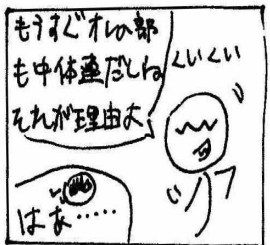 もうすぐオレの部
も中体連だしね
それが理由よ
くいくい
はあ……